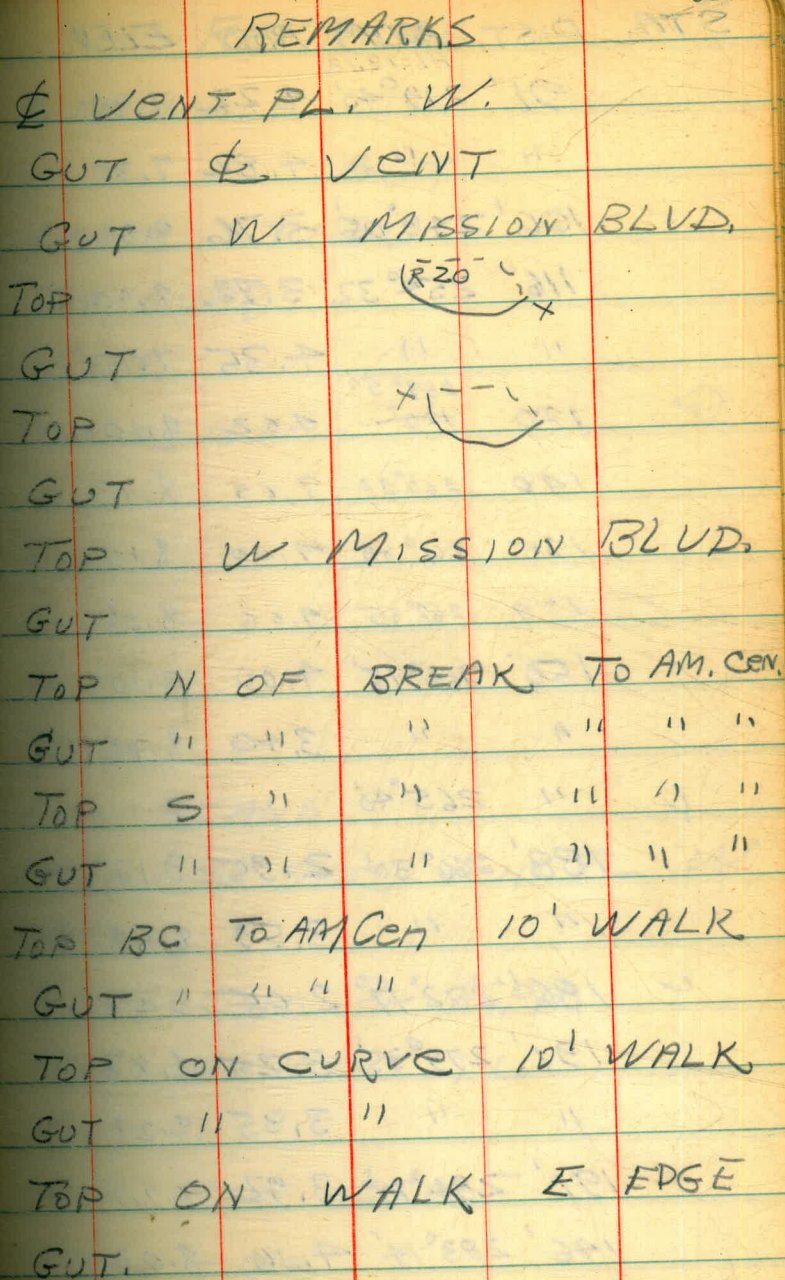 REMARKS
℄ VENT PL. W.
GUT ℄ VENT
GUT W MISSION BLVD.
TOP R 20' X
GUT
TOP X
GUT
TOP W MISSION BLVD.
GUT
TOP N OF BREAK TO AM. CEN.
GUT " " " " " "
TOP S " " " " "
GUT " " " " " "
TOP BC TO AM/Cen 10' WALK
GUT " " " "
TOP ON CURVE 10' WALK
GUT " "
TOP ON WALK E EDGE
GUT.